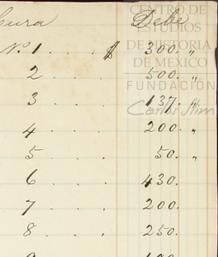 Debe
Nº 1 . . . . $ 300. "
2 . . . . 500. "
3 . . . . 137. "
4 . . . . 200. "
5 . . . . 50. "
6 . . . . 430.
7 . . . . 200.
8 . . . . 250.
CENTRO DE
ESTUDIOS
DE HISTORIA
DE MÉXICO
FUNDACIÓN
Carlos Slim